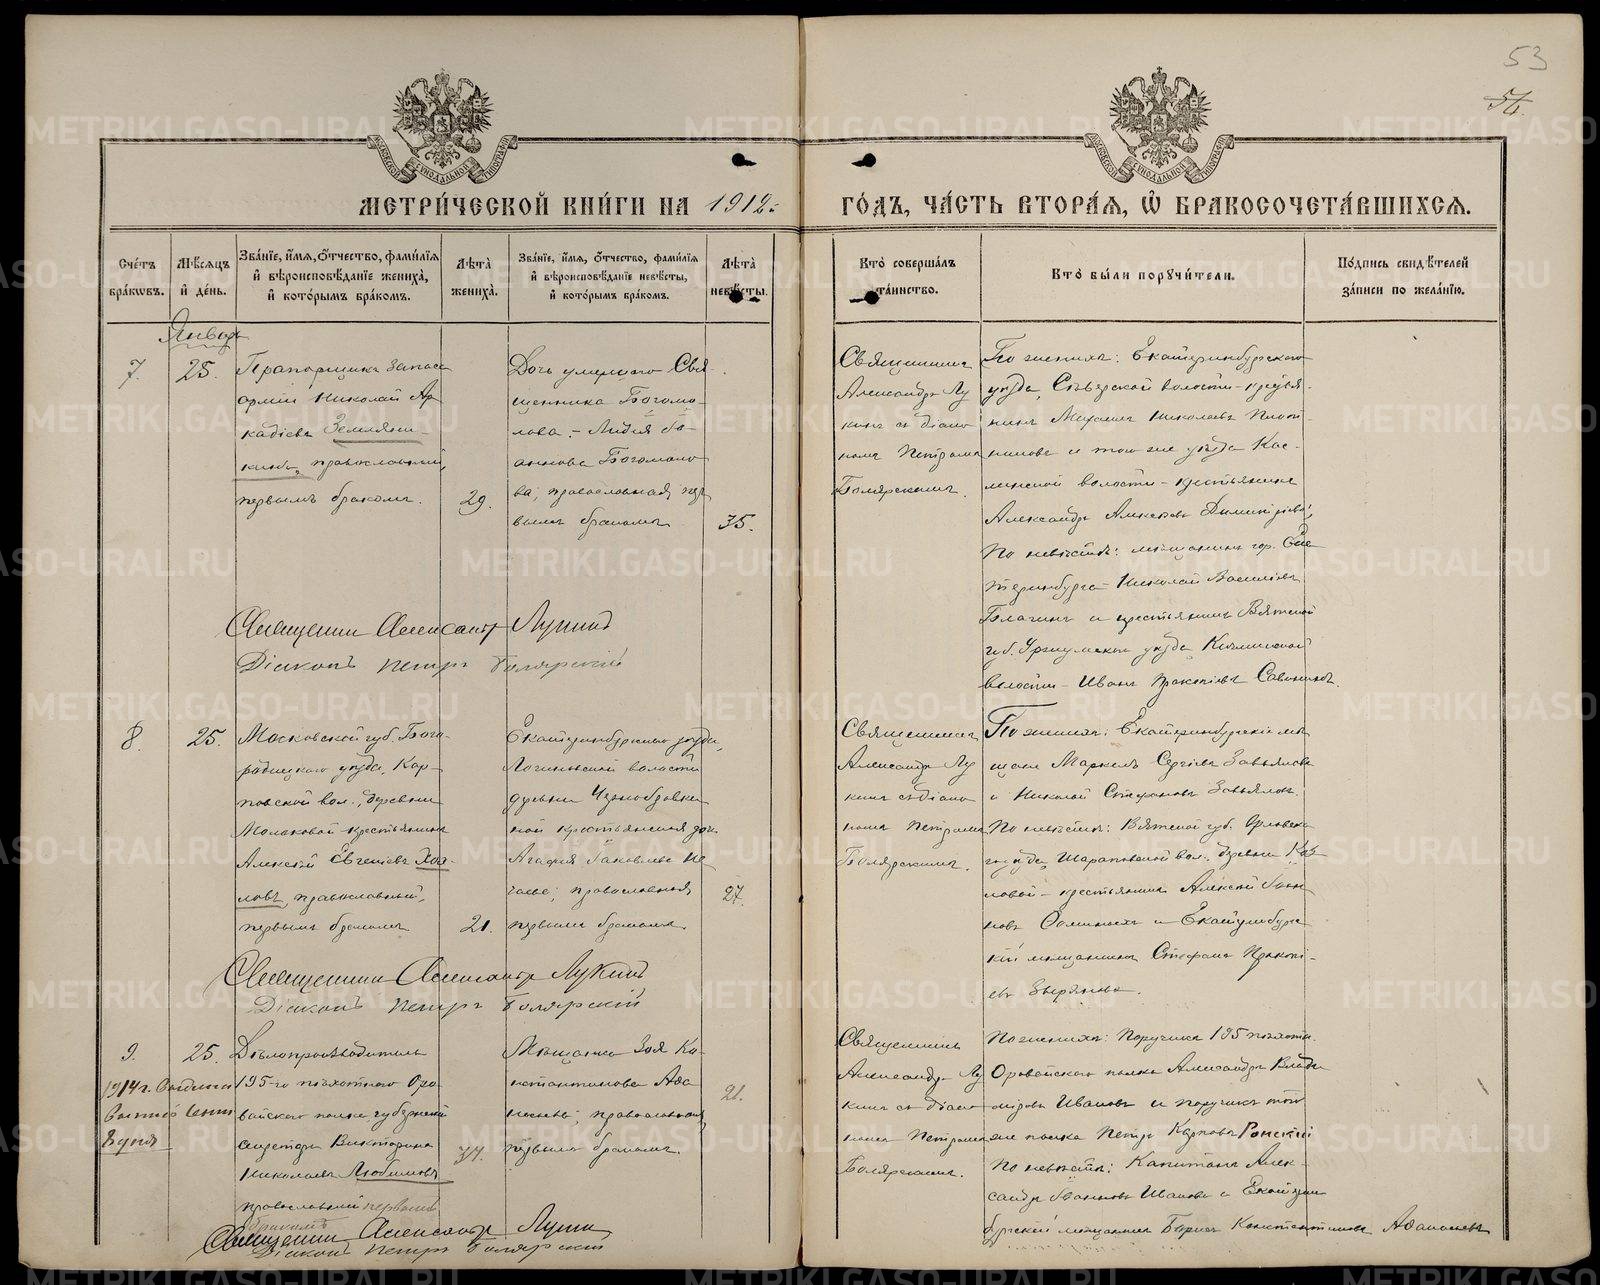 53
54
МЕТРИ́ЧЕСКОЙ КНИ́ГИ НА 1912 ГО́ДЪ, ЧА́СТЬ ВТОРА́Я, Ѽ БРАКОСОЧЕТА́ВШИХСЯ.
Сче́тъ бра́кωвъ.
Мѣ́сяцъ и҆ де́нь.
Зва́нїе, и҆́мя, ѻ҆́тчество, фами́лїя и҆ вѣроисповѣ́данїе жениха̀, и҆ кото́рымъ бра́комъ.
Лѣ́та жениха̀.
Зва́нїе, и҆́мя, ѻ҆́тчество, фами́лїя и҆ вѣроисповѣ́данїе невѣ́сты, и҆ кото́рымъ бра́комъ.
Лѣ́та невѣ́сты.
Кто̀ соверша́лъ та́инство.
Кто̀ бы́ли порꙋчи́тели.
По́дпись свидѣ́телей за́писи по жела́нїю.
Январь
7.
25.
Прапорщикъ запаса
армiи Николай Ар
кадiевъ Земляни-
кинъ, православный,
первымъ бракомъ.
29.
Дочь умершаго Свя-
щенника Богомо-
лова - Лидiя Iо-
аннова Богомоло
ва, православная, пер
вымъ бракомъ
35.
Священникъ
Александръ Лу
кинъ съ дiако
номъ Петромъ
Болярскимъ.
По женихѣ: Екатеринбургскаго
уѣзда, Сысертской волости - крестья
нинъ Николаевъ
и того же уѣзда Кас-
линской волости - крестьянинъ
Александръ Алексѣевъ
По невѣстѣ: мѣщанинъ гор. Ека
теринбурга Николай Васильевъ
и крестьянинъ Вятской
губ. Уржумскаго уѣзда,
волости - Иванъ Прокопьевъ
Священникъ Александръ Лукинъ
Дiаконъ Петръ Болярскiй
8.
25.
Московской губ. Бого-
родицкаго уѣзда, Кар-
повской вол., деревни
Молоковой крестьянинъ
Алексѣй Евгенiевъ Хох-
ловъ, православный,
первымъ бракомъ
21.
Екатеринбургскаго уѣзда,
Логиновской волости
деревни Чернобровки
ной крестьянская дочь
Агафiя Яковлева Не
чаева, православная
первымъ бракомъ.
27.
Священникъ
Александръ Лу
кинъ съ дiако
номъ Петромъ
Болярскимъ.
По женихѣ: Екатеринбургскiе мѣ
щане Маркелъ Сергѣевъ Завьяловъ
и Николай Стефановъ Завьяловъ.
По невѣстѣ: Вятской губ. Орловска
го уѣзда, Шараповской вол., деревни Коз
ловой - крестьянинъ Алексѣй Iоан
новъ и Екатеринбург
скiй мѣщанинъ Стефанъ Прокопi-
евъ Зверяновъ.
Священникъ Александръ Лукинъ
Дiаконъ Петръ Болярскiй
9.
25.
1914 г.
8 дня
Дѣлопроизводитель
195-го пѣхотнаго Оро
вайскаго полка губернскiй
секретарь Викторинъ
Николаевъ Любимовъ
православный первымъ
бракомъ
34.
Мѣщанка Зоя Ко
нстантинова Афа
насьева, православная,
первымъ бракомъ.
21.
Священникъ
Александръ Лу
кинъ съ дiако
номъ Петромъ
Болярскимъ.
По женихѣ: Поручикъ 195 пѣхотн.
Оровайскаго полка Александръ Влади
мiровъ Ивановъ и поручикъ того
же полка Петръ Карповъ Ронскiй
По невѣстѣ: Капитанъ Алек-
сандръ Iоанновъ Ивановъ и Екатерин
бургскiй мѣщанинъ Борисъ Константиновъ Афанасьевъ
Священникъ Александръ Лукинъ
Дiаконъ Петръ Болярскiй
METRIKI.GASO-URAL.RU